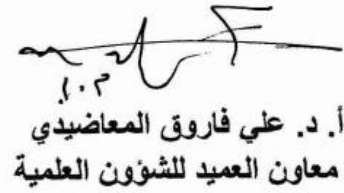 أ. د. علي فاروق المعاضيدي
معاون العميد للشؤون العلمية